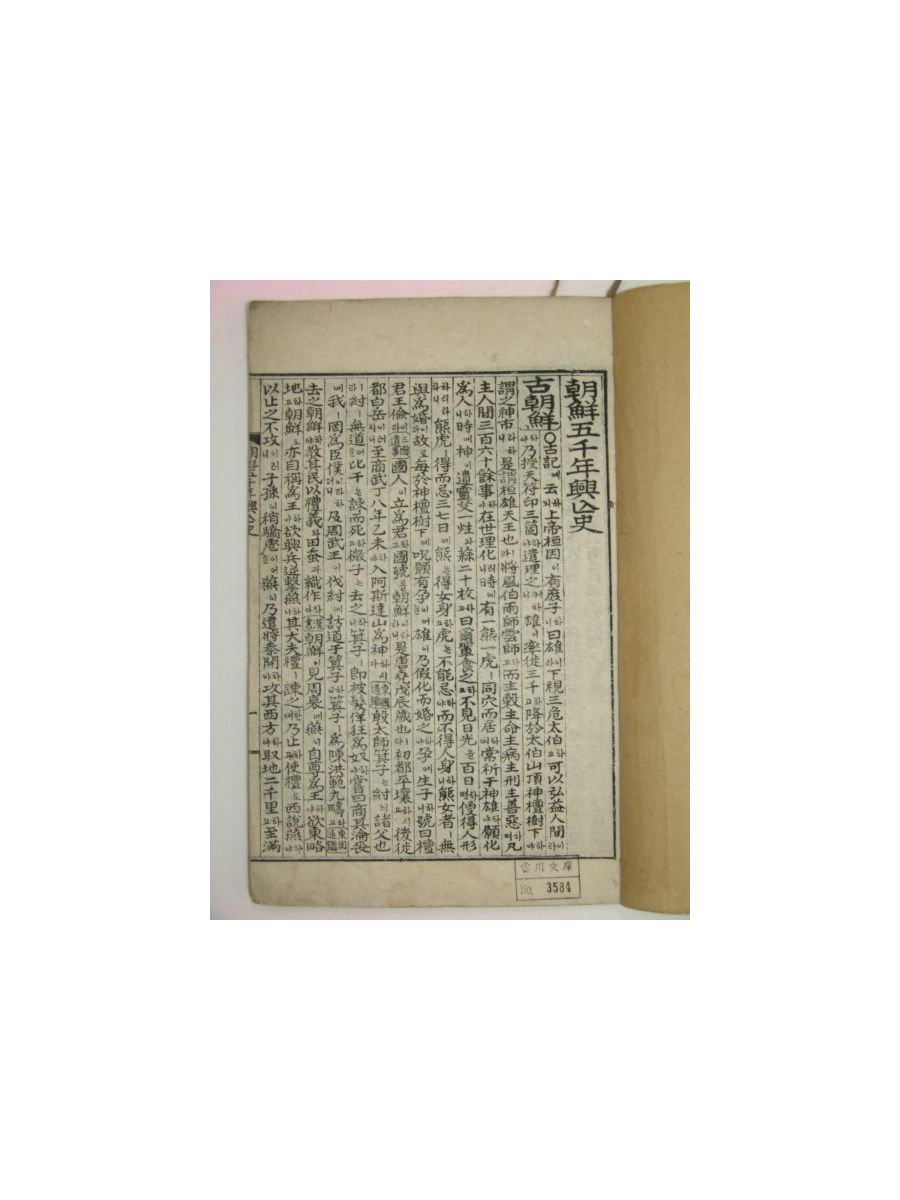 朝鮮五千年興亾史
古朝鮮○古記에云호되上帝桓因이有庶子하니曰雄이라下視三危太伯하고可以弘益人間이라하야
乃授天符印三箇하야遣理之케하니雄이率徒三千하고降於太伯山頂神檀樹下하야
謂之神市라하니是謂桓雄天王也라將風伯雨師雲師하고而主穀主命主病主刑主善惡하며凡
主人間三百六十餘事하야在世理化러니時에有一熊一虎ㅣ同穴而居하며常祈于神雄하야願化
爲人하니時에神이遺靈艾一炷와蒜二十枚하고曰爾輩食之하고不見日光을百日하면便得人形
하리라하니熊虎ㅣ得而忌三七日에熊은得女身하고虎는不能忌하야而不得人身하니熊女者ㅣ無
與爲婚故로每於神檀樹下에呪願有孕이어늘雄이乃假化而婚之하야孕에生子하니號曰檀
君王儉이라三國遺事國人이立爲君하고國號를朝鮮이라하니是唐堯戊辰歲也라初都平壤하시고後徙
都白岳이러시니至商武丁八年乙未하야入阿斯達山爲神하시다東國通鑑殷太師箕子는紂의諸父也
라紂ㅣ無道어늘比干은諫而死하고微子는去之하고箕子ㅣ卽被髮佯狂爲奴하야嘗曰商其淪喪
에我ㅣ罔爲臣僕이라하더니及周武王이伐紂에訪道于箕子한대箕子ㅣ爲陳洪範九疇하고東國通鑑
去之朝鮮하야敎其民以禮義와田蚕과織作하다漢書朝鮮이見周衰에燕이自尊爲王하야欲東略
地하고朝鮮도亦自稱爲王하야欲興兵逆擊燕이러니其大夫禮ㅣ諫之한대乃止하고使禮로西說燕하야
以止之不攻이러니子孫이稍驕虐이어늘燕이乃遣將秦開하야攻其西方하야取地二千里하고至滿
朝鮮五千年興亾史
一
雲川文庫
No. 3584